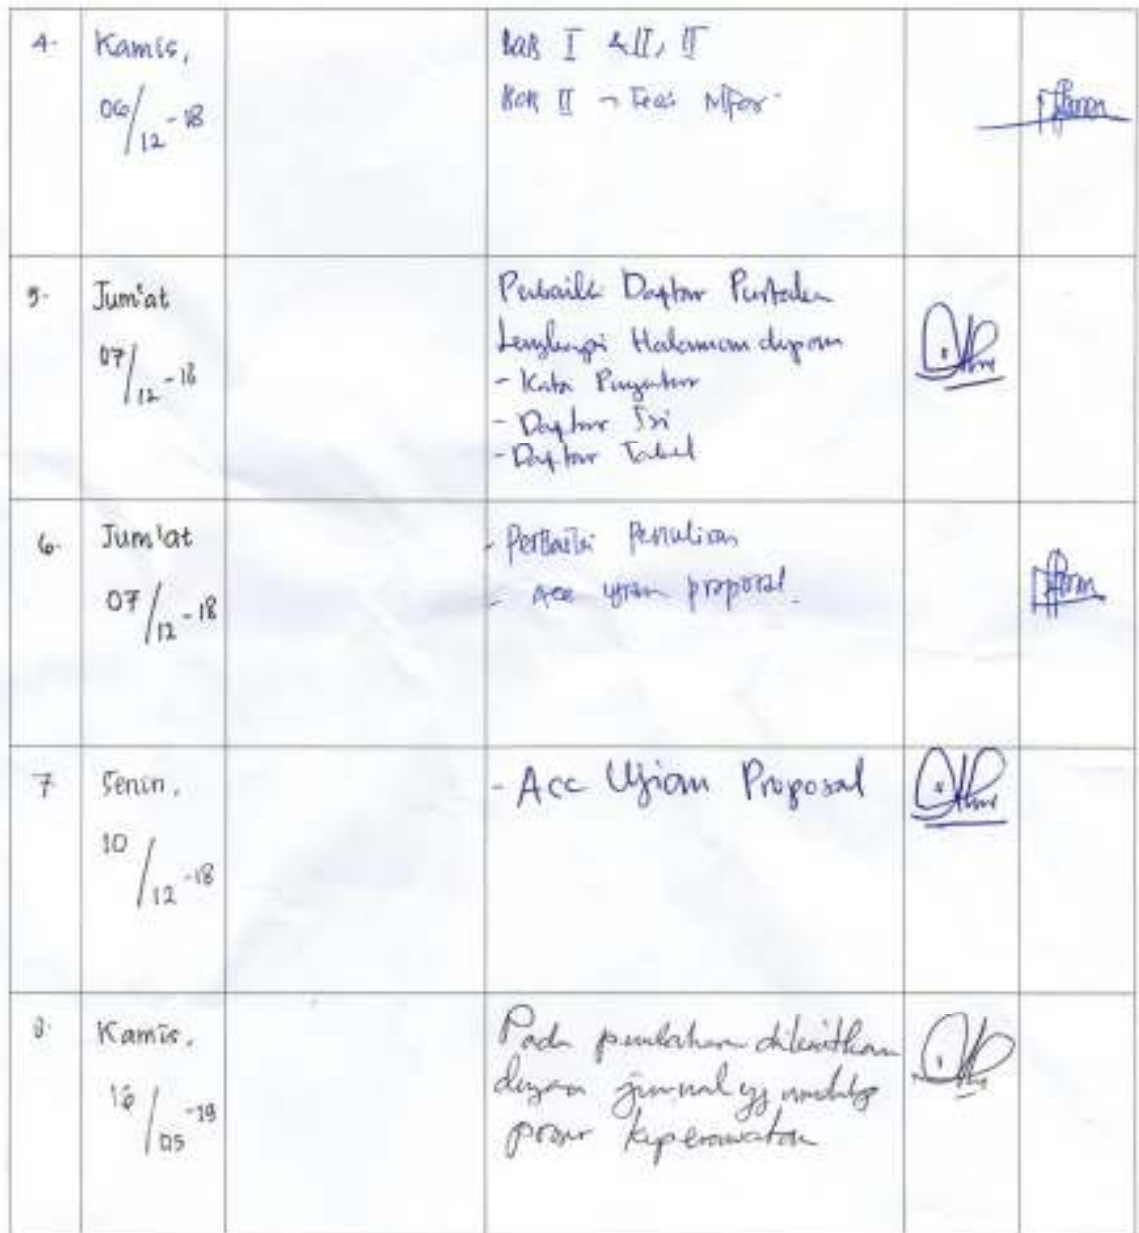 4. Kamis,
06/12-18
BAB I & II, II
BAB II →
5. Jum'at
07/12-18
Perbaiki Daftar Pustaka
Lengkapi Halaman depan
- Kata Pengantar
- Daftar Isi
- Daftar Tabel
6. Jum'at
07/12-18
- Perbaiki Penulisan
- Acc ujian proposal.
7 Senin,
10/12-18
- Acc Ujian Proposal
8. Kamis,
16/05-19
Pada pembahasan dikaitkan
dengan jurnal yg
proses keperawatan